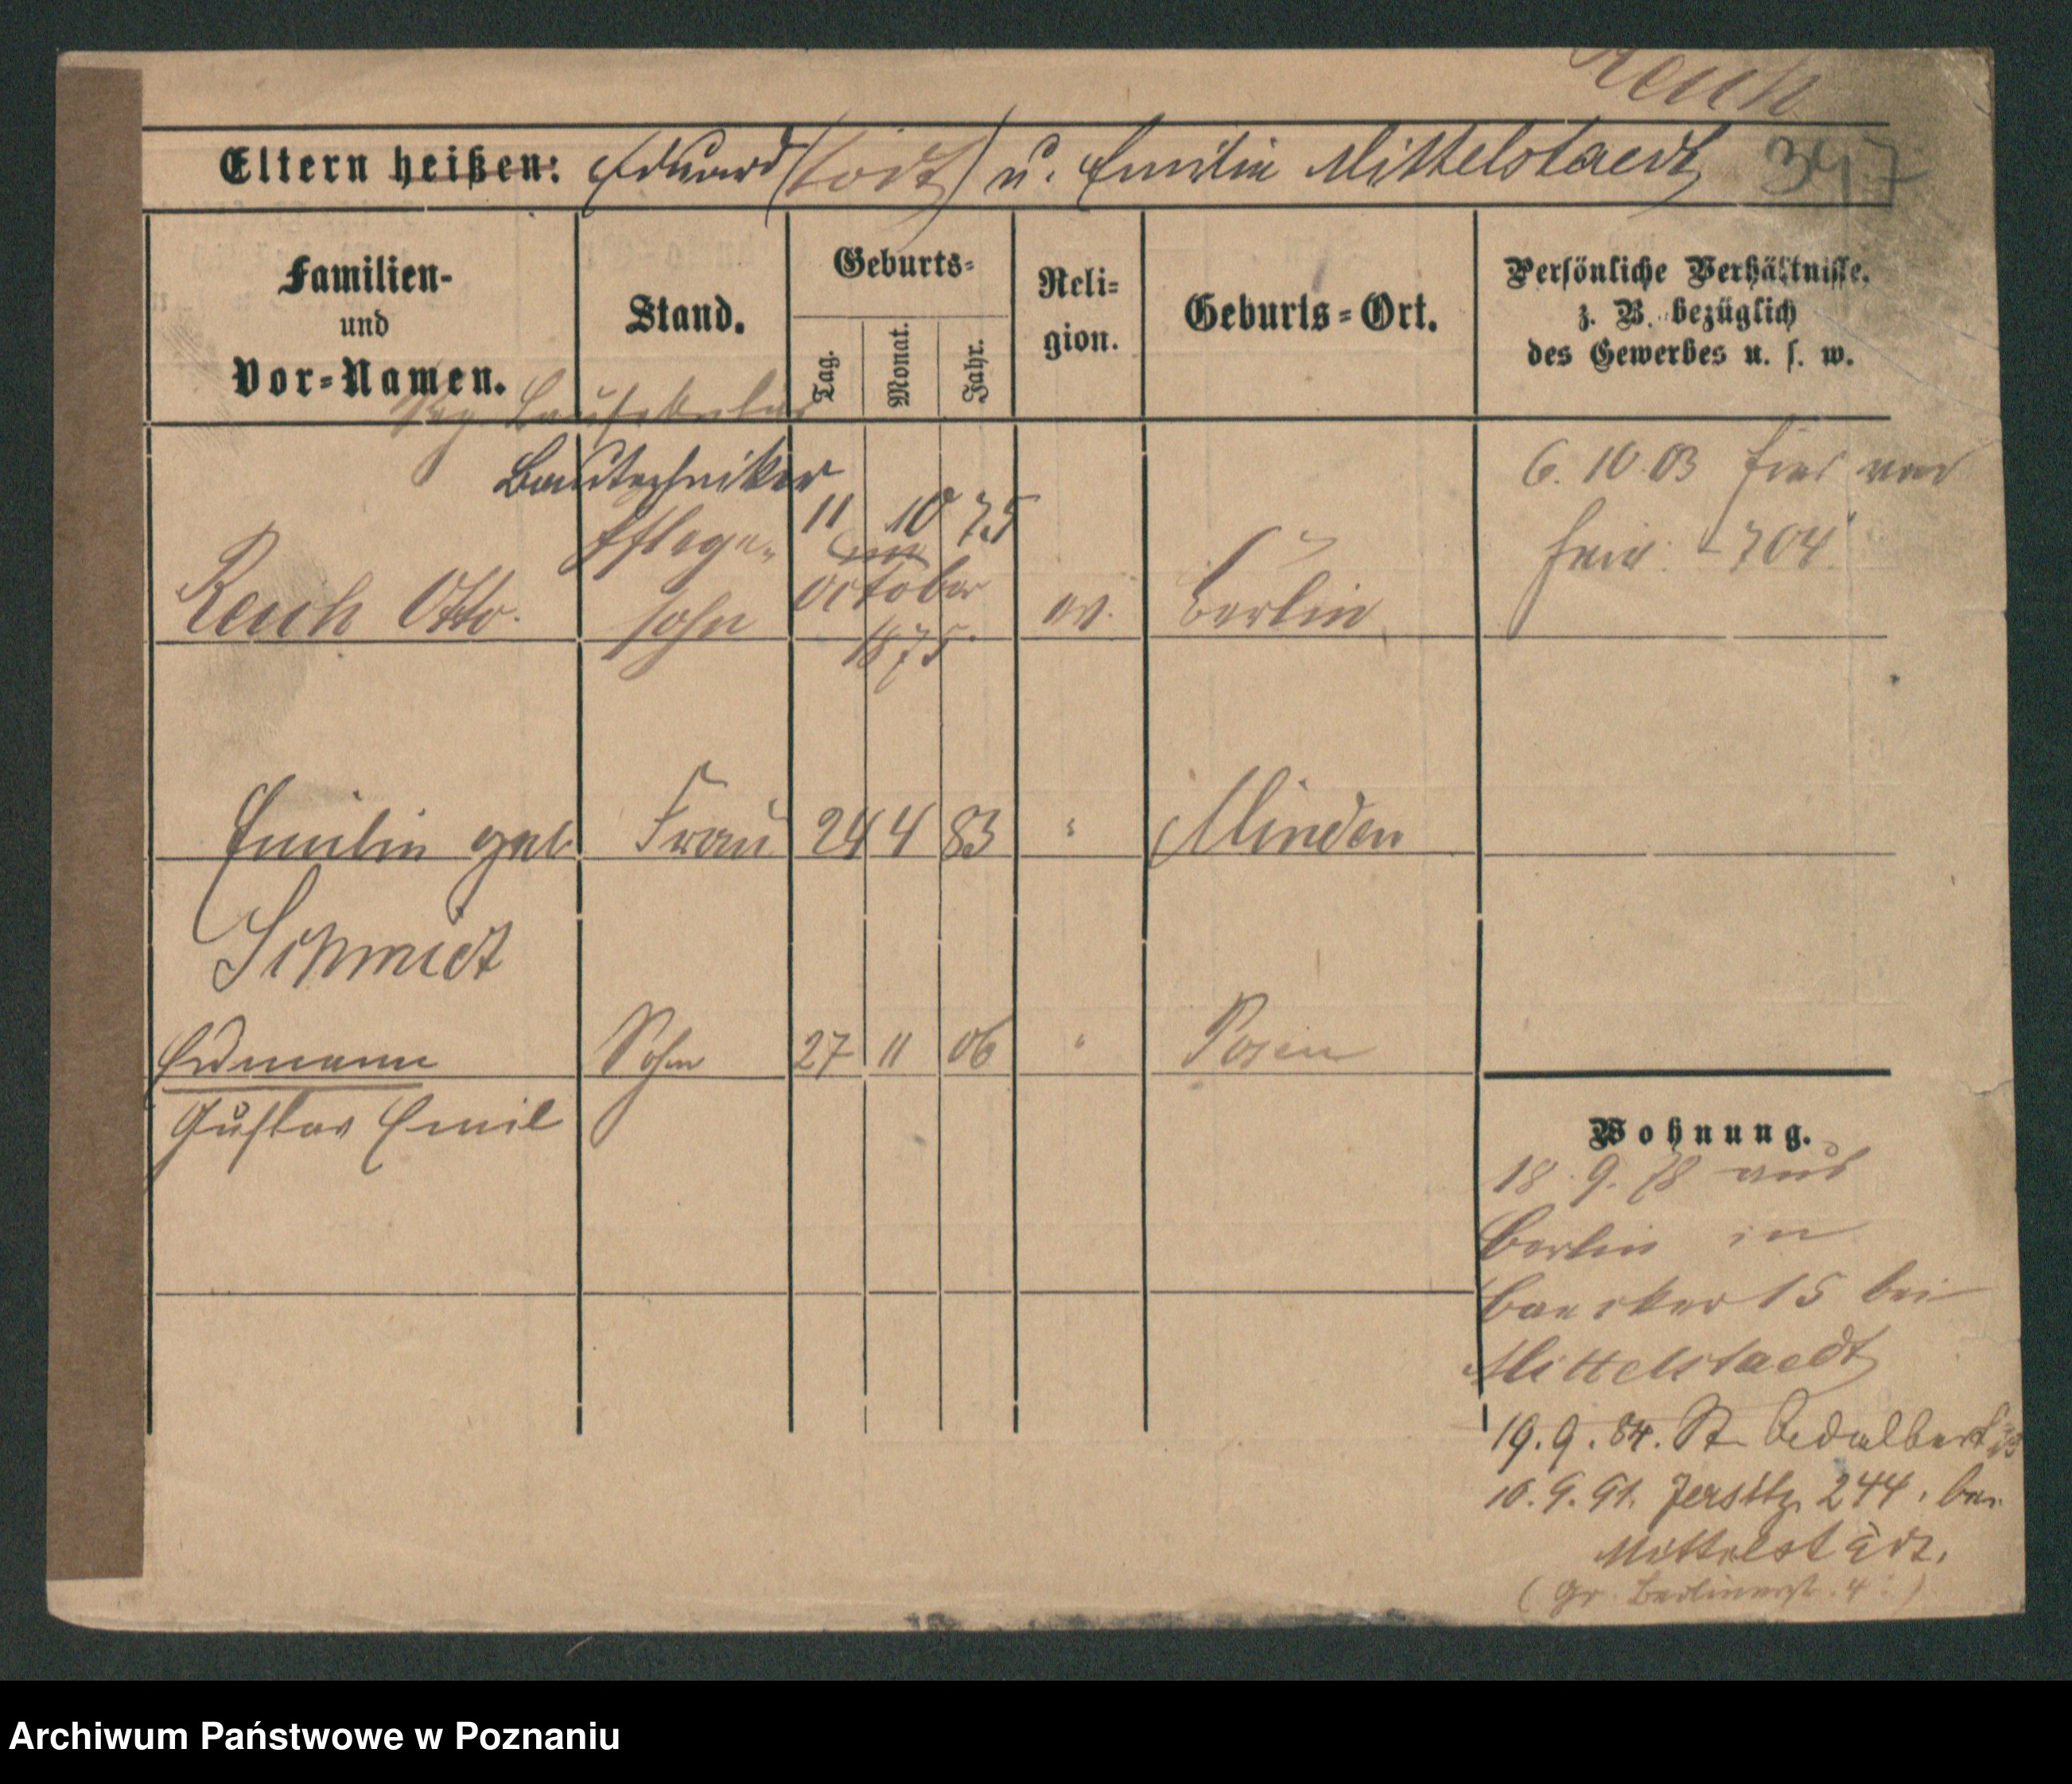 Reich
Eltern heißen: Eduard (todt) u. Emilie Mittelstaedt 397
Familien-
und
Vor-Namen.
Stand.
Geburts-
Tag.
Monat.
Jahr.
Reli-
gion.
Geburts-Ort.
Persönliche Verhältnisse,
z. B. bezüglich
des Gewerbes u. s. w.
Bautechniker
Reich Otto.
Pflege-
sohn
11 10 75
October
1875.
ev.
Berlin
6. 10. 03
704
Emilie geb
Schmidt
Frau
24 4 83
"
Minden
Erdmann
Gustav Emil
Sohn
27 11 06
"
Posen
Wohnung.
18. 9. 78 aus
Berlin in
Baecker 15 bei
Mittelstaedt
19. 9. 84. St. Adalbert
10. 9. 91. Jersitz 244. bei
Mittelstädt.
(Gr. Berlinerst. 4.)
Archiwum Państwowe w Poznaniu